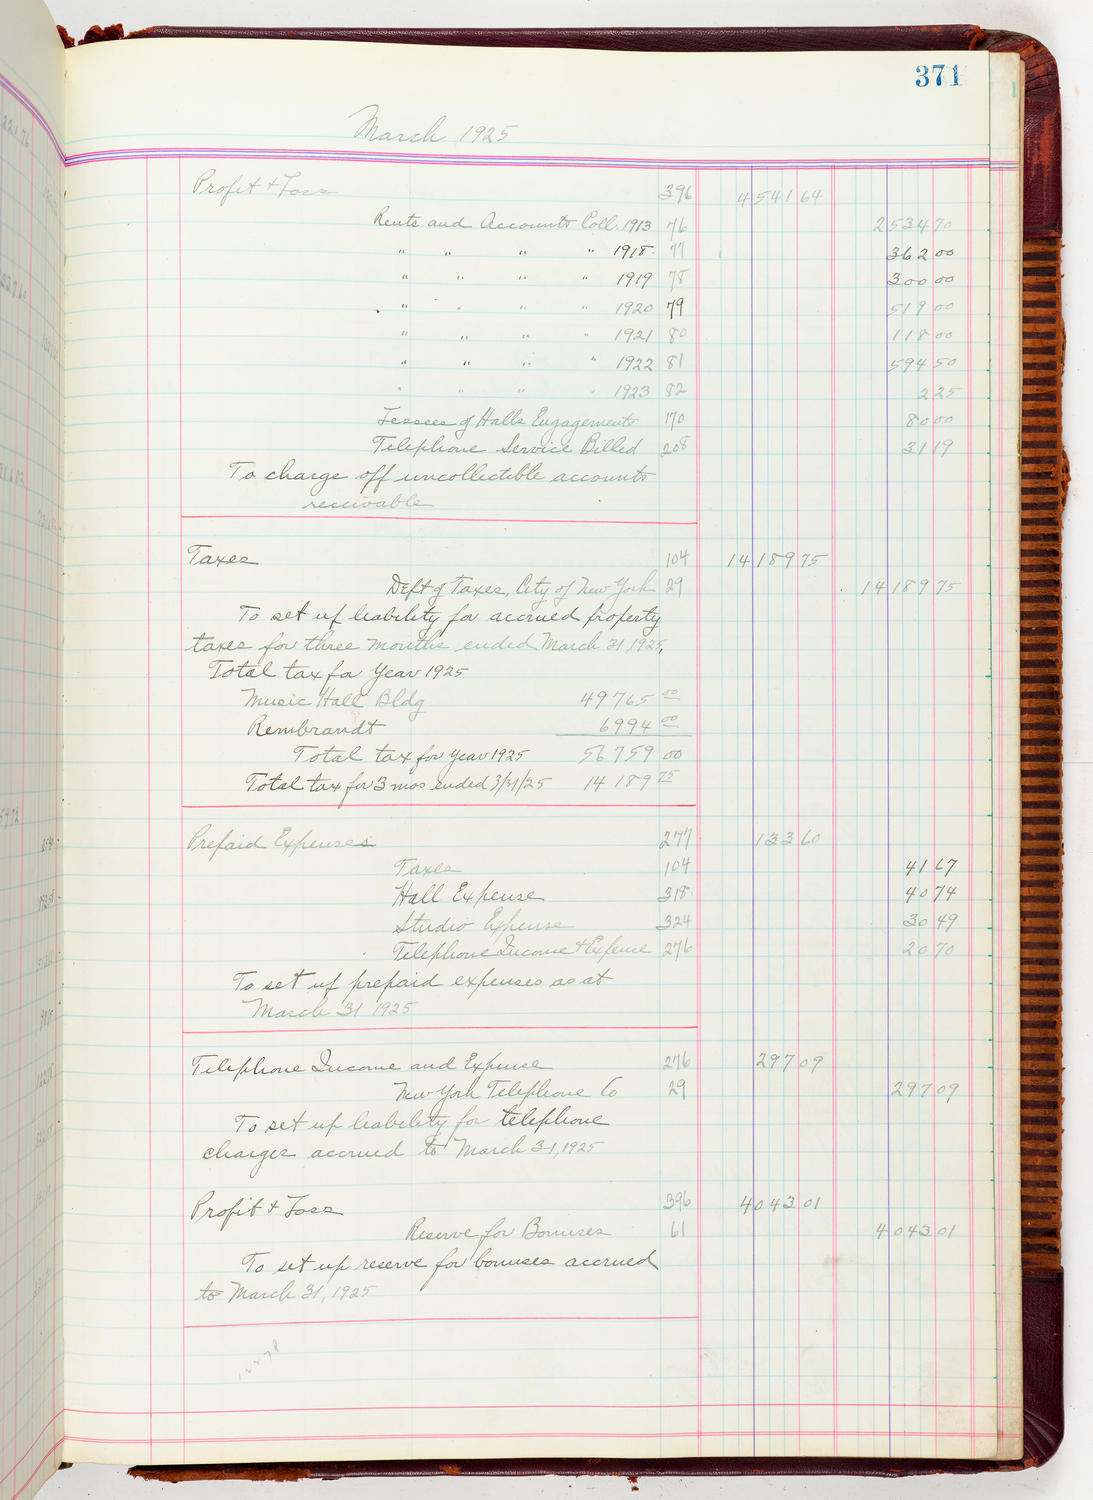 371
March 1925
Profit & Loss 396 4541 64
Rents and Accounts Coll. 1913 76 2534 70
" " " " 1918 77 362 00
" " " " 1919 78 300 00
" " " " 1920 79 519 00
" " " " 1921 80 118 00
" " " " 1922 81 594 50
" " " " 1923 82 2 25
Lessees of Halls Engagements 170 80 00
Telephone Service Billed 208 31 19
To charge off uncollectible accounts
receivable
Taxes 104 14189 75
Dept of Taxes, City of New York 29 14189 75
To set up liability for accrued property
taxes for three months ended March 31 1925,
Total tax for Year 1925
Music Hall Bldg 49765 00
Rembrandt 6994 00
Total tax for year 1925 56759 00
Total tax for 3 mos ended 3/31/25 14189 75
Prepaid Expenses 277 133 60
Taxes 104 41 67
Hall Expense 318 40 74
Studio Expense 324 30 49
Telephone Income & Expense 276 20 70
To set up prepaid expenses as at
March 31 1925
Telephone Income and Expense 276 297 09
New York Telephone Co 29 297 09
To set up liability for telephone
charges accrued to March 31, 1925
Profit & Loss 396 4043 01
Reserve for Bonuses 61 4043 01
To set up reserve for bonuses accrued
to March 31, 1925